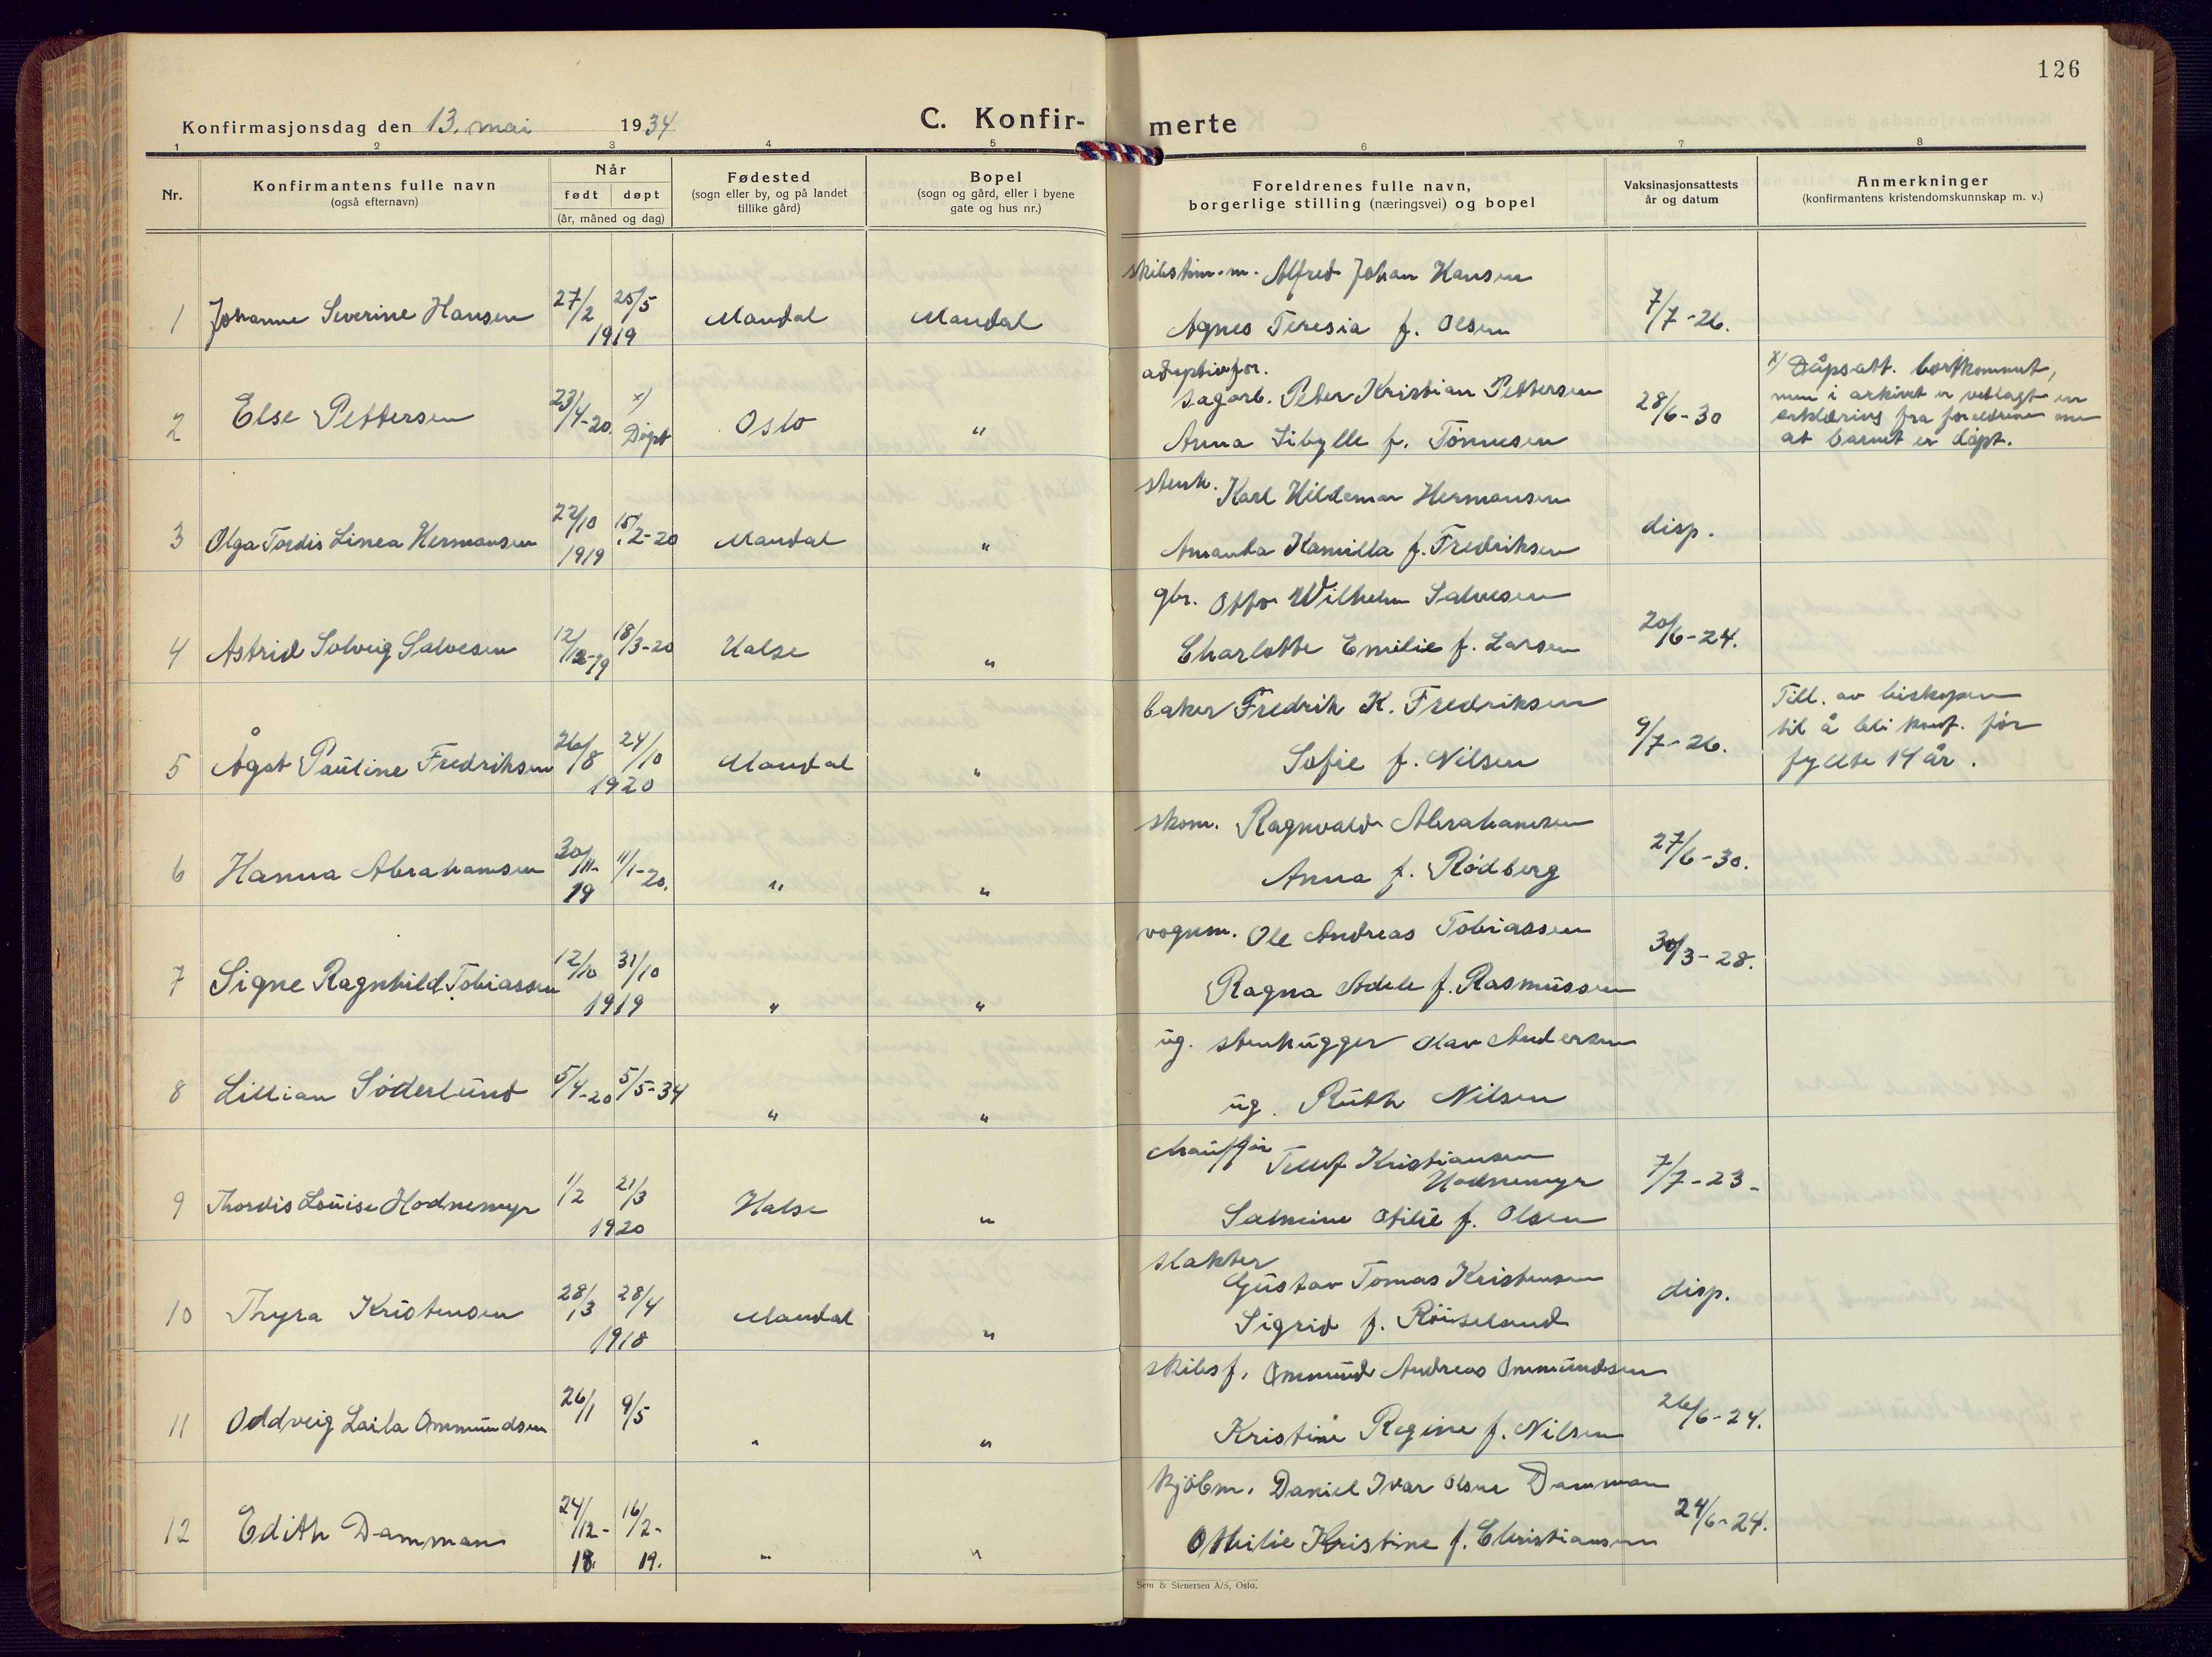 126
Konfirmasjonsdag den 13. mai 1934
C. Konfir- merte
1 2 3 4 5 6 7 8
Nr.
Konfirmantens fulle navn
(også efternavn)
Når
født døpt
(år, måned og dag)
Fødested
(sogn eller by, og på landet
tillike gård)
Bopel
(sogn og gård, eller i byene
gate og hus nr.)
Foreldrenes fulle navn,
borgerlige stilling (næringsvei) og bopel
Vaksinasjonsattests
år og datum
Anmerkninger
(konfirmantens kristendomskunnskap m. v.)
skibstøm.m. Alfred Johan Hansen
1 Johanne Severine Hansen 27/2 25/5 1919 Mandal Mandal
Agnes Teresia f. Olsen 7/7-26.
adoptivfor.
sagarb. Peter Kristian Pettersen
2 Else Pettersen 23/4-20. x) Døpt Oslo "
Anna Sibylle f. Tønnesen 28/6-30
x) Dåpsatt. bortkommet,
men i arkivet er vedlagt en
erklæring fra foreldrene om
at barnet er døpt.
stenh. Karl Hildemar Hermansen
3 Olga Tordis Linea Hermansen 22/10 1919 15/2-20 Mandal "
Amanda Kamilla f. Fredriksen disp.
gbr. Otto Wilhelm Salvesen
4 Astrid Solveig Salvesen 12/12-19 18/3-20 Halse "
Charlotte Emilie f. Larsen 20/6-24.
baker Fredrik K. Fredriksen
5 Ågot Pauline Fredriksen 26/8 24/10 1920 Mandal "
Sofie f. Nilsen 9/7-26.
Till. av biskopen
til å bli konf. før
fyllte 14 år.
skom. Ragnvald Abrahamsen
6 Hanna Abrahamsen 30/11-19 11/1-20. " "
Anna f. Rødberg 27/6-30.
vognm. Ole Andreas Tobiassen
7 Signe Ragnhild Tobiassen 12/10 31/10 1919 " "
Ragna Adele f. Rasmussen 30/3-28.
ug. stenhugger Olav Andersen
8 Lillian Söderlund 5/4-20 5/5-34 " "
ug. Ruth Nilsen
chauffør Tellef Kristiansen
Hodnemyr
9 Thordis Louise Hodnemyr 1/2 21/3 1920 Halse "
Salmine Otilie f. Olsen 7/7-23-
slakter
Gustav Tomas Kristensen
10 Thyra Kristensen 28/3 28/4 1918 Mandal "
Sigrid f. Röiseland disp.
skibsf. Ommund Andreas Ommundsen
11 Oddveig Laila Ommundsen 26/1 9/5 " "
Kristine Regine f. Nilsen 26/6-24.
kjøbm. Daniel Ivar Olsen Damman
12 Edith Damman 24/12-18. 16/2-19. " "
Othilie Kristine f. Christiansen 24/6-24.
Sem & Stenersen A/S, Oslo.